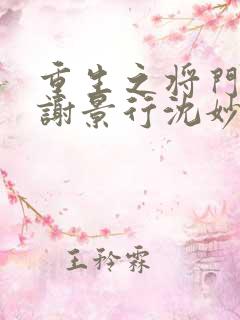 重生之将門
謝景行沈妙
王矜霖